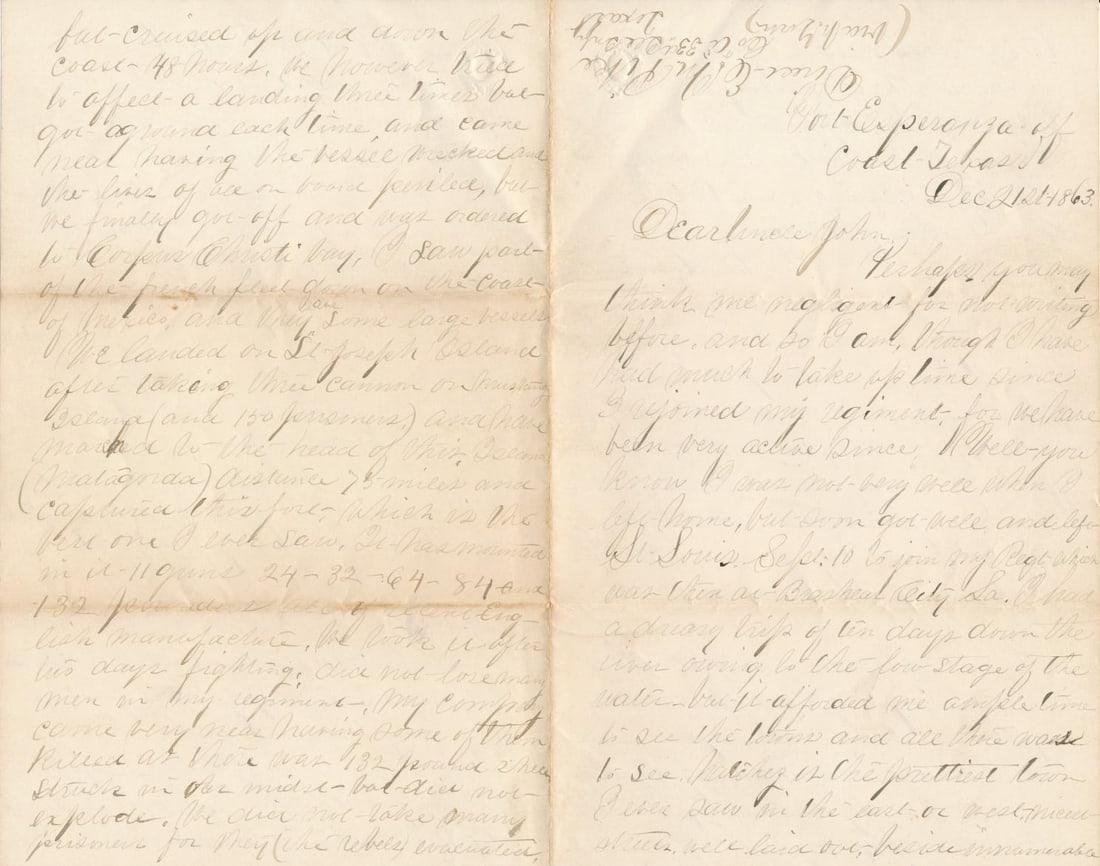 but cruised up and down the
coast 48 hours. We however tried
to affect a landing three times but
got aground each time, and came
near having the vessel wrecked and
the lives of all on board periled, but
we finally got off and was ordered
to Corpus Christi bay, I saw part
of the french fleet down on the coast
of Mexico, and they are some large vessels
We landed on St Joseph Island
after taking three cannon on Mustang
Island (and 150 prisoners) and have
marched to the head of this Island
(Matagorda) distance 75 miles and
captured this fort, which is the
best one I ever saw. It has mounted
in it 11 guns 24-32-64-84 and
132 pounders all of Eng-
lish manufacture. We took it after
two days fighting, did not lose many
men in my regiment. My company
came very near having some of them
killed as there was 132 pound shell
struck in our midst but did not
explode. We did not take many
prisoners for they (the rebels) evacuated.
Direct C. M.
Co A 33 Ills Infty
Texas
(Via N. Orleans)
Fort Esperanza off
Coast Texas
Dec 21st 1863.
Dear Uncle John,
Perhaps you may
think me negligent for not writing
before, and so I am, though I have
had much to take up time since
I rejoined my regiment, for we have
been very active since. Well you
know I was not very well when I
left home, but soon got well and left
St Louis Sept. 10 to join my Regt which
was then at Brashear City La. I had
a dreary trip of ten days down the
river owing to the low stage of the
water but it afforded me ample time
to see the towns and all there was
to see. Natchez is the prettiest town
I ever saw in the east or west, nice
streets, well laid out, beside innumerable